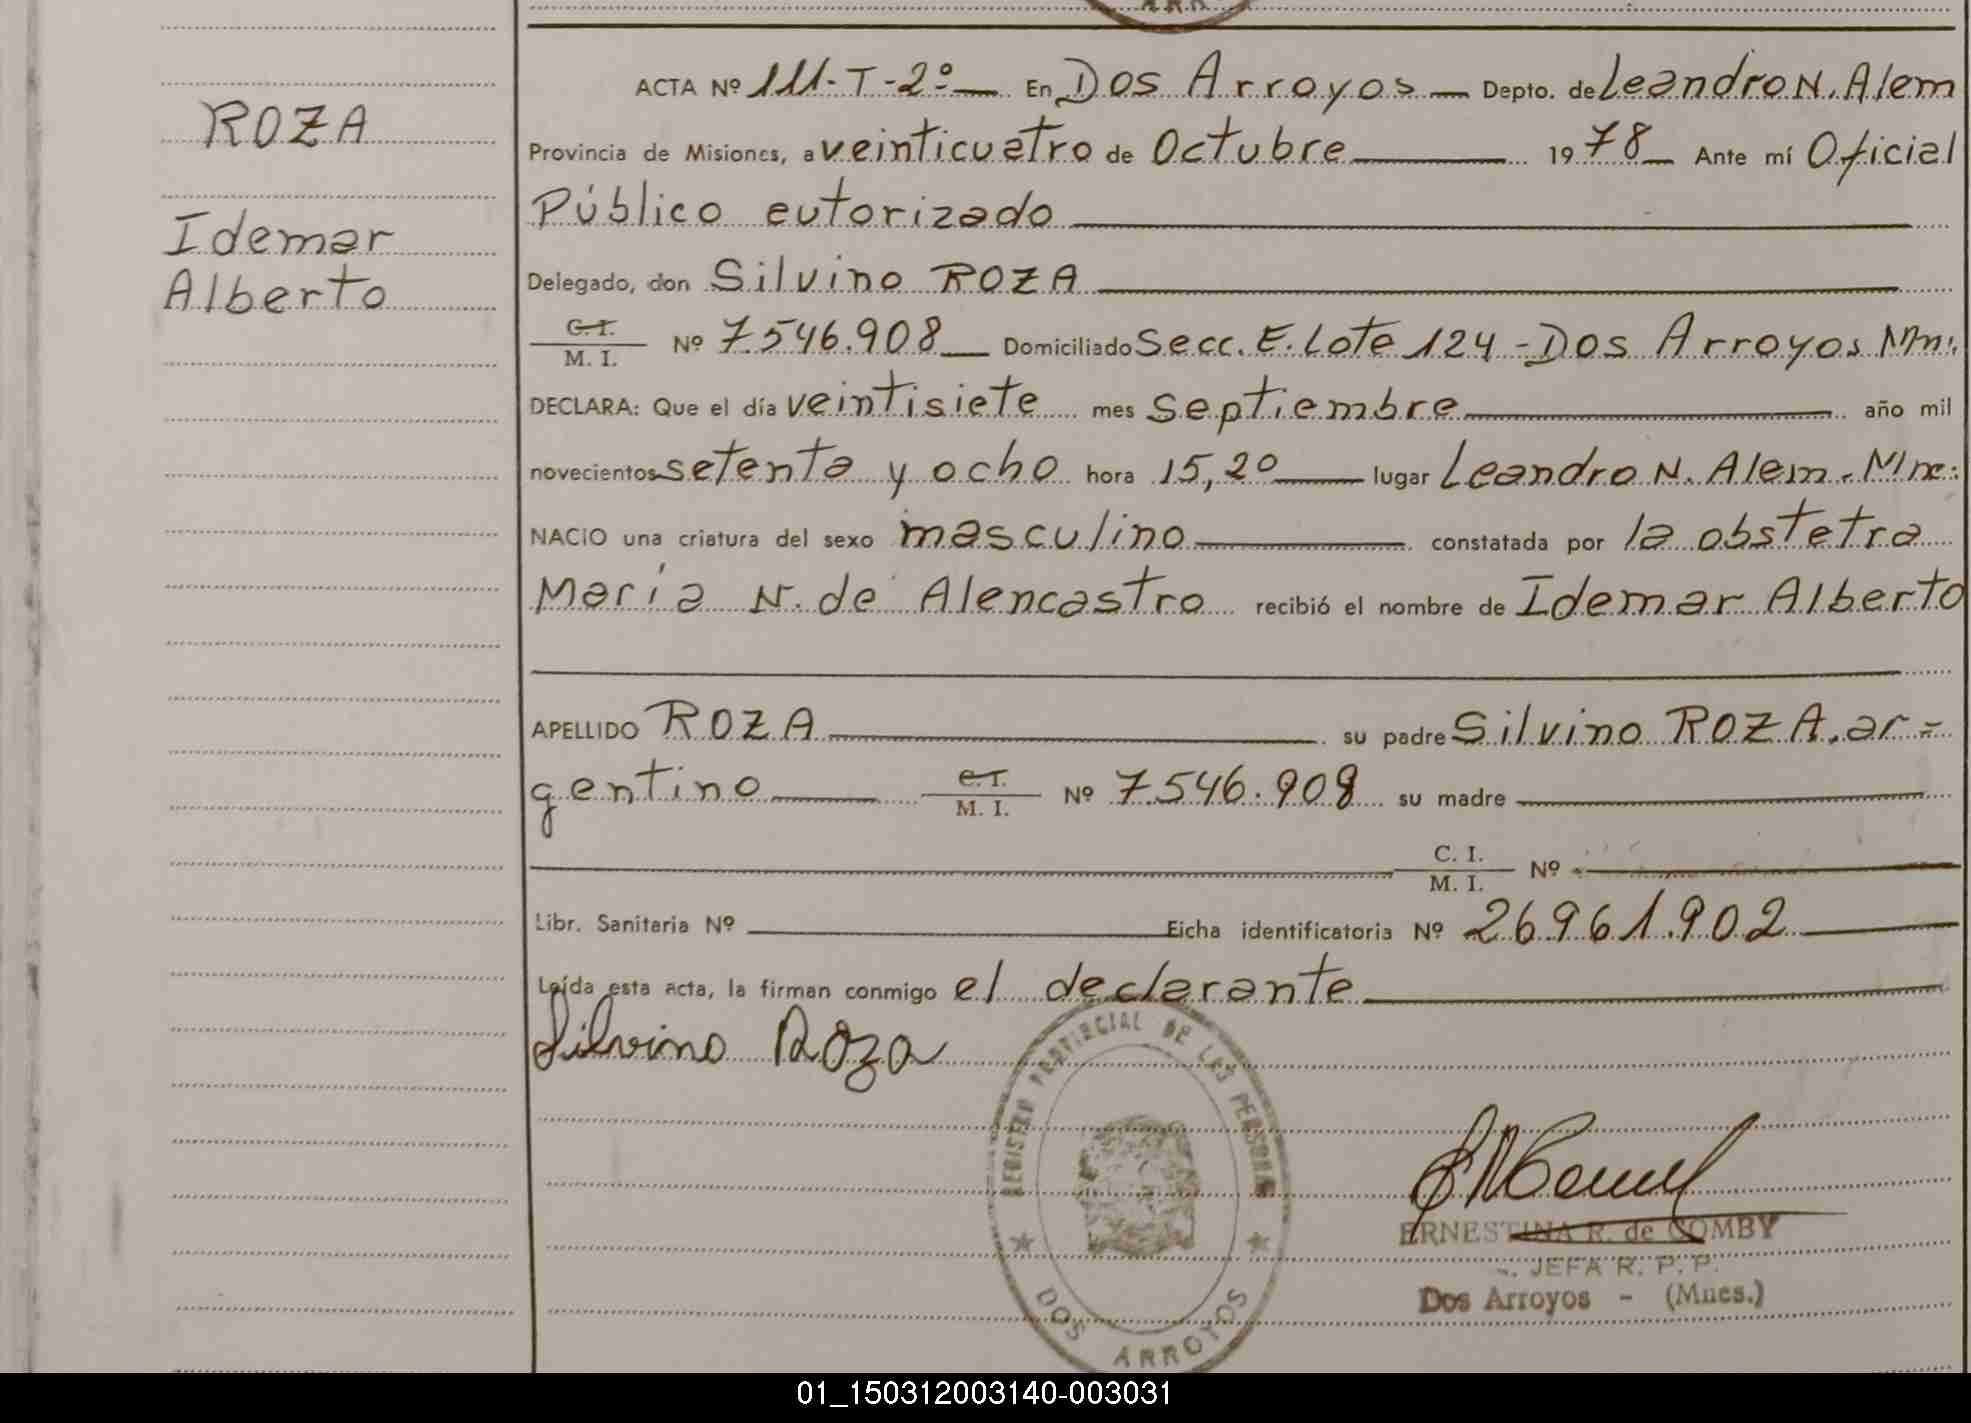 ARR
ACTA Nº 111-T-2º En Dos Arroyos Depto. de Leandro N. Alem
ROZA
Provincia de Misiones, a veinticuatro de Octubre 1978 Ante mí Oficial
Público autorizado
Idemar
Alberto
Delegado, don Silvino ROZA
C.I.
M. I. Nº 7.546.908 Domiciliado Secc. E. Lote 124 - Dos Arroyos Mn:
DECLARA: Que el día veintisiete mes septiembre año mil
novecientos setenta y ocho hora 15,20 lugar Leandro N. Alem. Mnes:
NACIO una criatura del sexo masculino constatada por la obstetra
María N. de Alencastro recibió el nombre de Idemar Alberto
APELLIDO ROZA su padre Silvino ROZA, ar=
gentino C.I. M. I. Nº 7.546.908 su madre
C. I.
M. I. Nº
Libr. Sanitaria Nº Ficha identificatoria Nº 26.961.902
Leída esta acta, la firman conmigo el declarante
Silvino Roza
REGISTRO PROVINCIAL DE LAS PERSONAS
DOS ARROYOS
ERNESTINA R. de COMBY
JEFA R. P. P.
Dos Arroyos - (Mnes.)
01_150312003140-003031